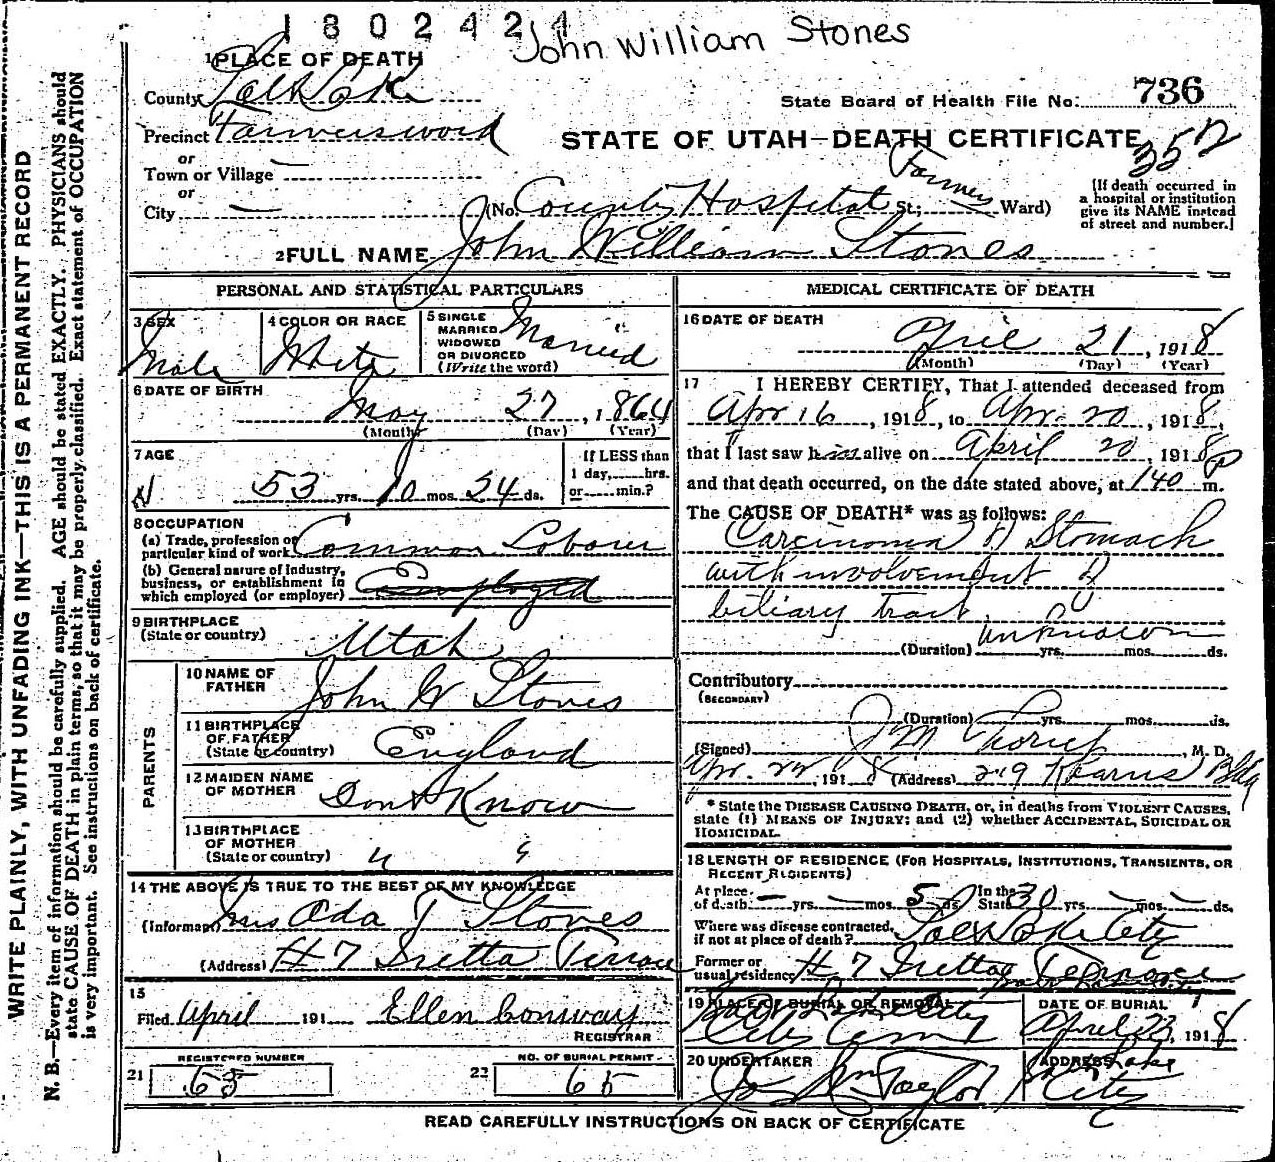 1802424
John William Stones
1 PLACE OF DEATH
County Salt Lake
State Board of Health File No. 736
Precinct Farmersward
STATE OF UTAH—DEATH CERTIFICATE
352
or
Town or Village
or
City (No. County Hospital St; Farmers Ward)
[If death occurred in a hospital or institution give its NAME instead of street and number.]
2 FULL NAME John William Stones
PERSONAL AND STATISTICAL PARTICULARS
3 SEX
Male
4 COLOR OR RACE
White
5 SINGLE MARRIED WIDOWED OR DIVORCED (Write the word)
Married
6 DATE OF BIRTH
May 27, 1864
(Month) (Day) (Year)
7 AGE
53 yrs. 10 mos. 24 ds.
If LESS than 1 day, hrs. or min.?
8 OCCUPATION
(a) Trade, profession or particular kind of work Common Laborer
(b) General nature of industry, business, or establishment in which employed (or employer) Employed
9 BIRTHPLACE
(State or country) Utah
PARENTS
10 NAME OF FATHER John W Stones
11 BIRTHPLACE OF FATHER (State or country) England
12 MAIDEN NAME OF MOTHER Dont Know
13 BIRTHPLACE OF MOTHER (State or country) " "
14 THE ABOVE IS TRUE TO THE BEST OF MY KNOWLEDGE
(Informant) Mrs Ada T Stones
(Address) # 7 Terrace
15
Filed April 191 Ellen Conway
REGISTRAR
REGISTERED NUMBER
21 65
NO. OF BURIAL PERMIT
22 65
MEDICAL CERTIFICATE OF DEATH
16 DATE OF DEATH
April 21, 1918
(Month) (Day) (Year)
17 I HEREBY CERTIFY, That I attended deceased from
Apr 16, 1918, to Apr. 20, 1918,
that I last saw him alive on April 20, 1918
and that death occurred, on the date stated above, at 140 P m.
The CAUSE OF DEATH* was as follows:
Carcinoma of Stomach
with involvement of
biliary tract
unknown
(Duration) yrs. mos. ds.
Contributory
(SECONDARY)
(Duration) yrs. mos. ds.
(Signed) J M Thorup, M. D.
Apr. 22, 1918 (Address) 219 Kearns Bldg
* State the DISEASE CAUSING DEATH, or, in deaths from VIOLENT CAUSES, state (1) MEANS OF INJURY; and (2) whether ACCIDENTAL, SUICIDAL OR HOMICIDAL.
18 LENGTH OF RESIDENCE (FOR HOSPITALS, INSTITUTIONS, TRANSIENTS, OR RECENT RESIDENTS)
At place of death — yrs. — mos. 5 ds. In the State 30 yrs. — mos. — ds.
Where was disease contracted, if not at place of death? Salt Lake City
Former or usual residence # 7 Terrace
19 PLACE OF BURIAL OR REMOVAL
Salt Lake City
City Cem
DATE OF BURIAL
April 23, 1918
20 UNDERTAKER
Jos Wm Taylor
ADDRESS
Salt Lake City
READ CAREFULLY INSTRUCTIONS ON BACK OF CERTIFICATE
WRITE PLAINLY, WITH UNFADING INK—THIS IS A PERMANENT RECORD
N. B.—Every item of information should be carefully supplied. AGE should be stated EXACTLY. PHYSICIANS should
state CAUSE OF DEATH in plain terms, so that it may be properly classified. Exact statement of OCCUPATION
is very important. See instructions on back of certificate.